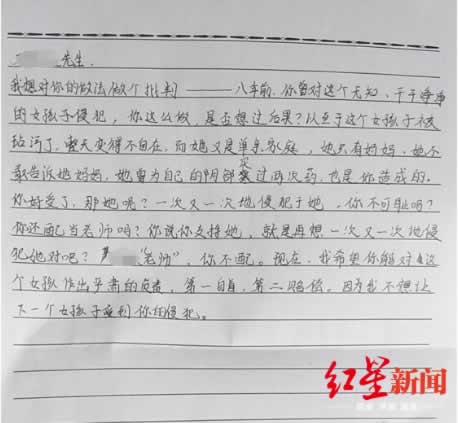 先生.
我想对你的做法做个批判———八年前,你曾对这个无知、干干净净
的女孩子侵犯,你这么做,是否想过后果?以至于这个女孩子被
玷污了,整天变得不自在,而她又是单亲家庭,她只有妈妈,她不
敢告诉她妈妈,她曾为自己的阴部 过两次药,也是你造成的.
你好受了,那她呢?一次又一次地侵犯于她,你不可耻吗?
你还配当老师吗?你说你支持她,就是再想一次又一次地侵
犯她对吧?严 “老师”,你不配。现在,我希望你能对这
个女孩作出乎肃的负责,第一自首,第二赔偿。因为我不想让
下一个女孩子受到你的侵犯。
红星新闻